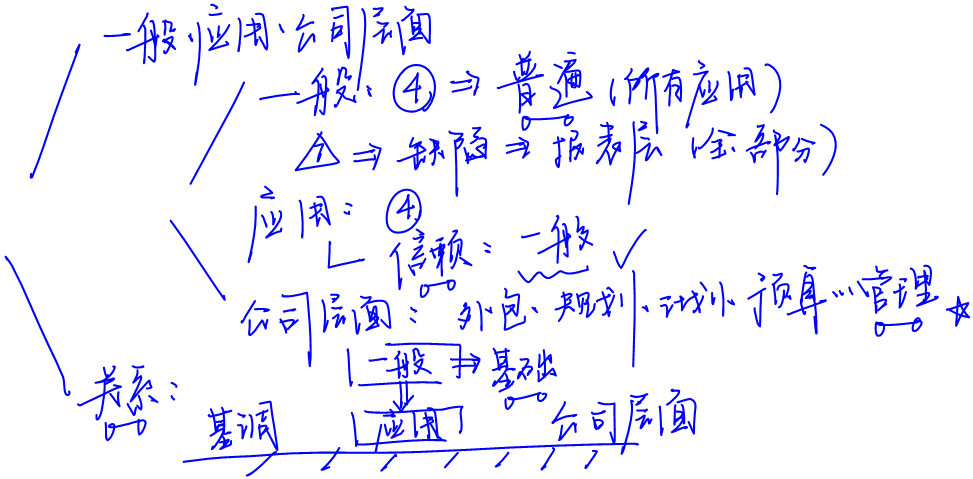 一般、应用、公司层面
一般：④ ⇒ 普遍（所有应用）
⇒ 缺陷 ⇒ 报表层（全部分）
应用：④
信赖：一般 ✓
公司层面：外包、规划、计划、预算…管理 ☆
一般 ⇒ 基础
关系：
基调 应用 公司层面